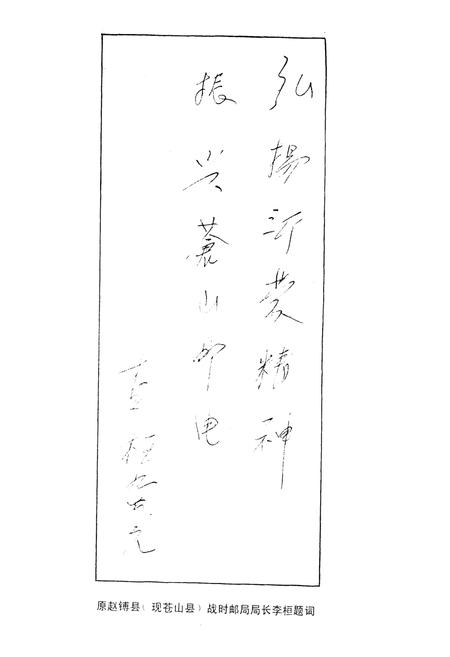 弘揚沂蒙精神
振兴蒼山邮电
李桓
原赵镈县(现苍山县)战时邮局局长李桓题词